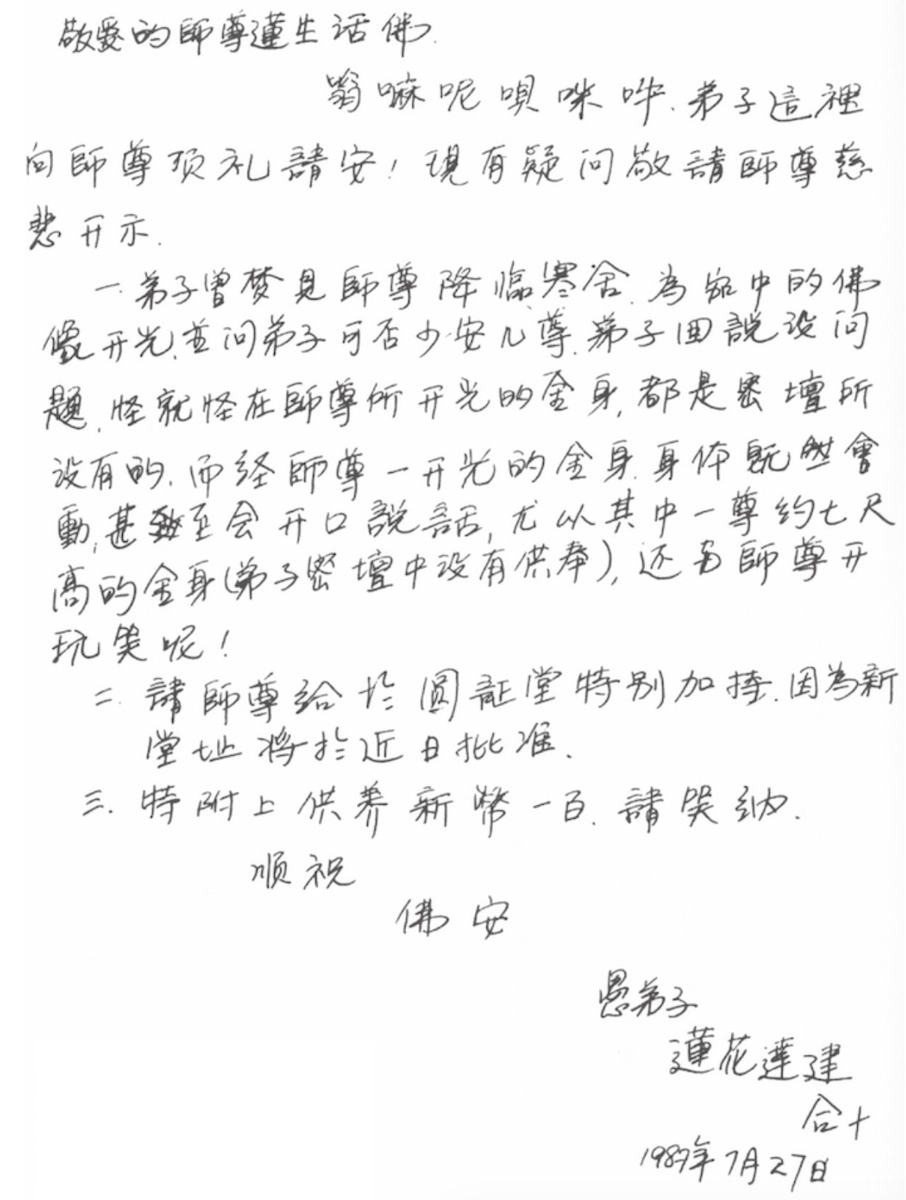 敬愛的師尊蓮生活佛.
翁嘛呢唄咪吽.弟子這裡
向師尊顶礼請安!現有疑问敬請師尊慈
悲开示.
一.弟子曾梦見師尊降臨寒舍.為家中的佛
像开光,並问弟子可否少安几尊.弟子回說没问
題,怪就怪在師尊所开光的金身,都是密壇所
没有的.而経師尊一开光的金身.身体既然會
動,甚至会开口說話,尤以其中一尊约七尺
高的金身(弟子密壇中没有供奉),还与師尊开
玩笑呢!
二.請師尊給於圓証堂特別加持.因為新
堂址将於近日批准.
三.特附上供养新幣一百.請笑納.
順祝
佛安
愚弟子
蓮花達建
合十
1989年7月27日